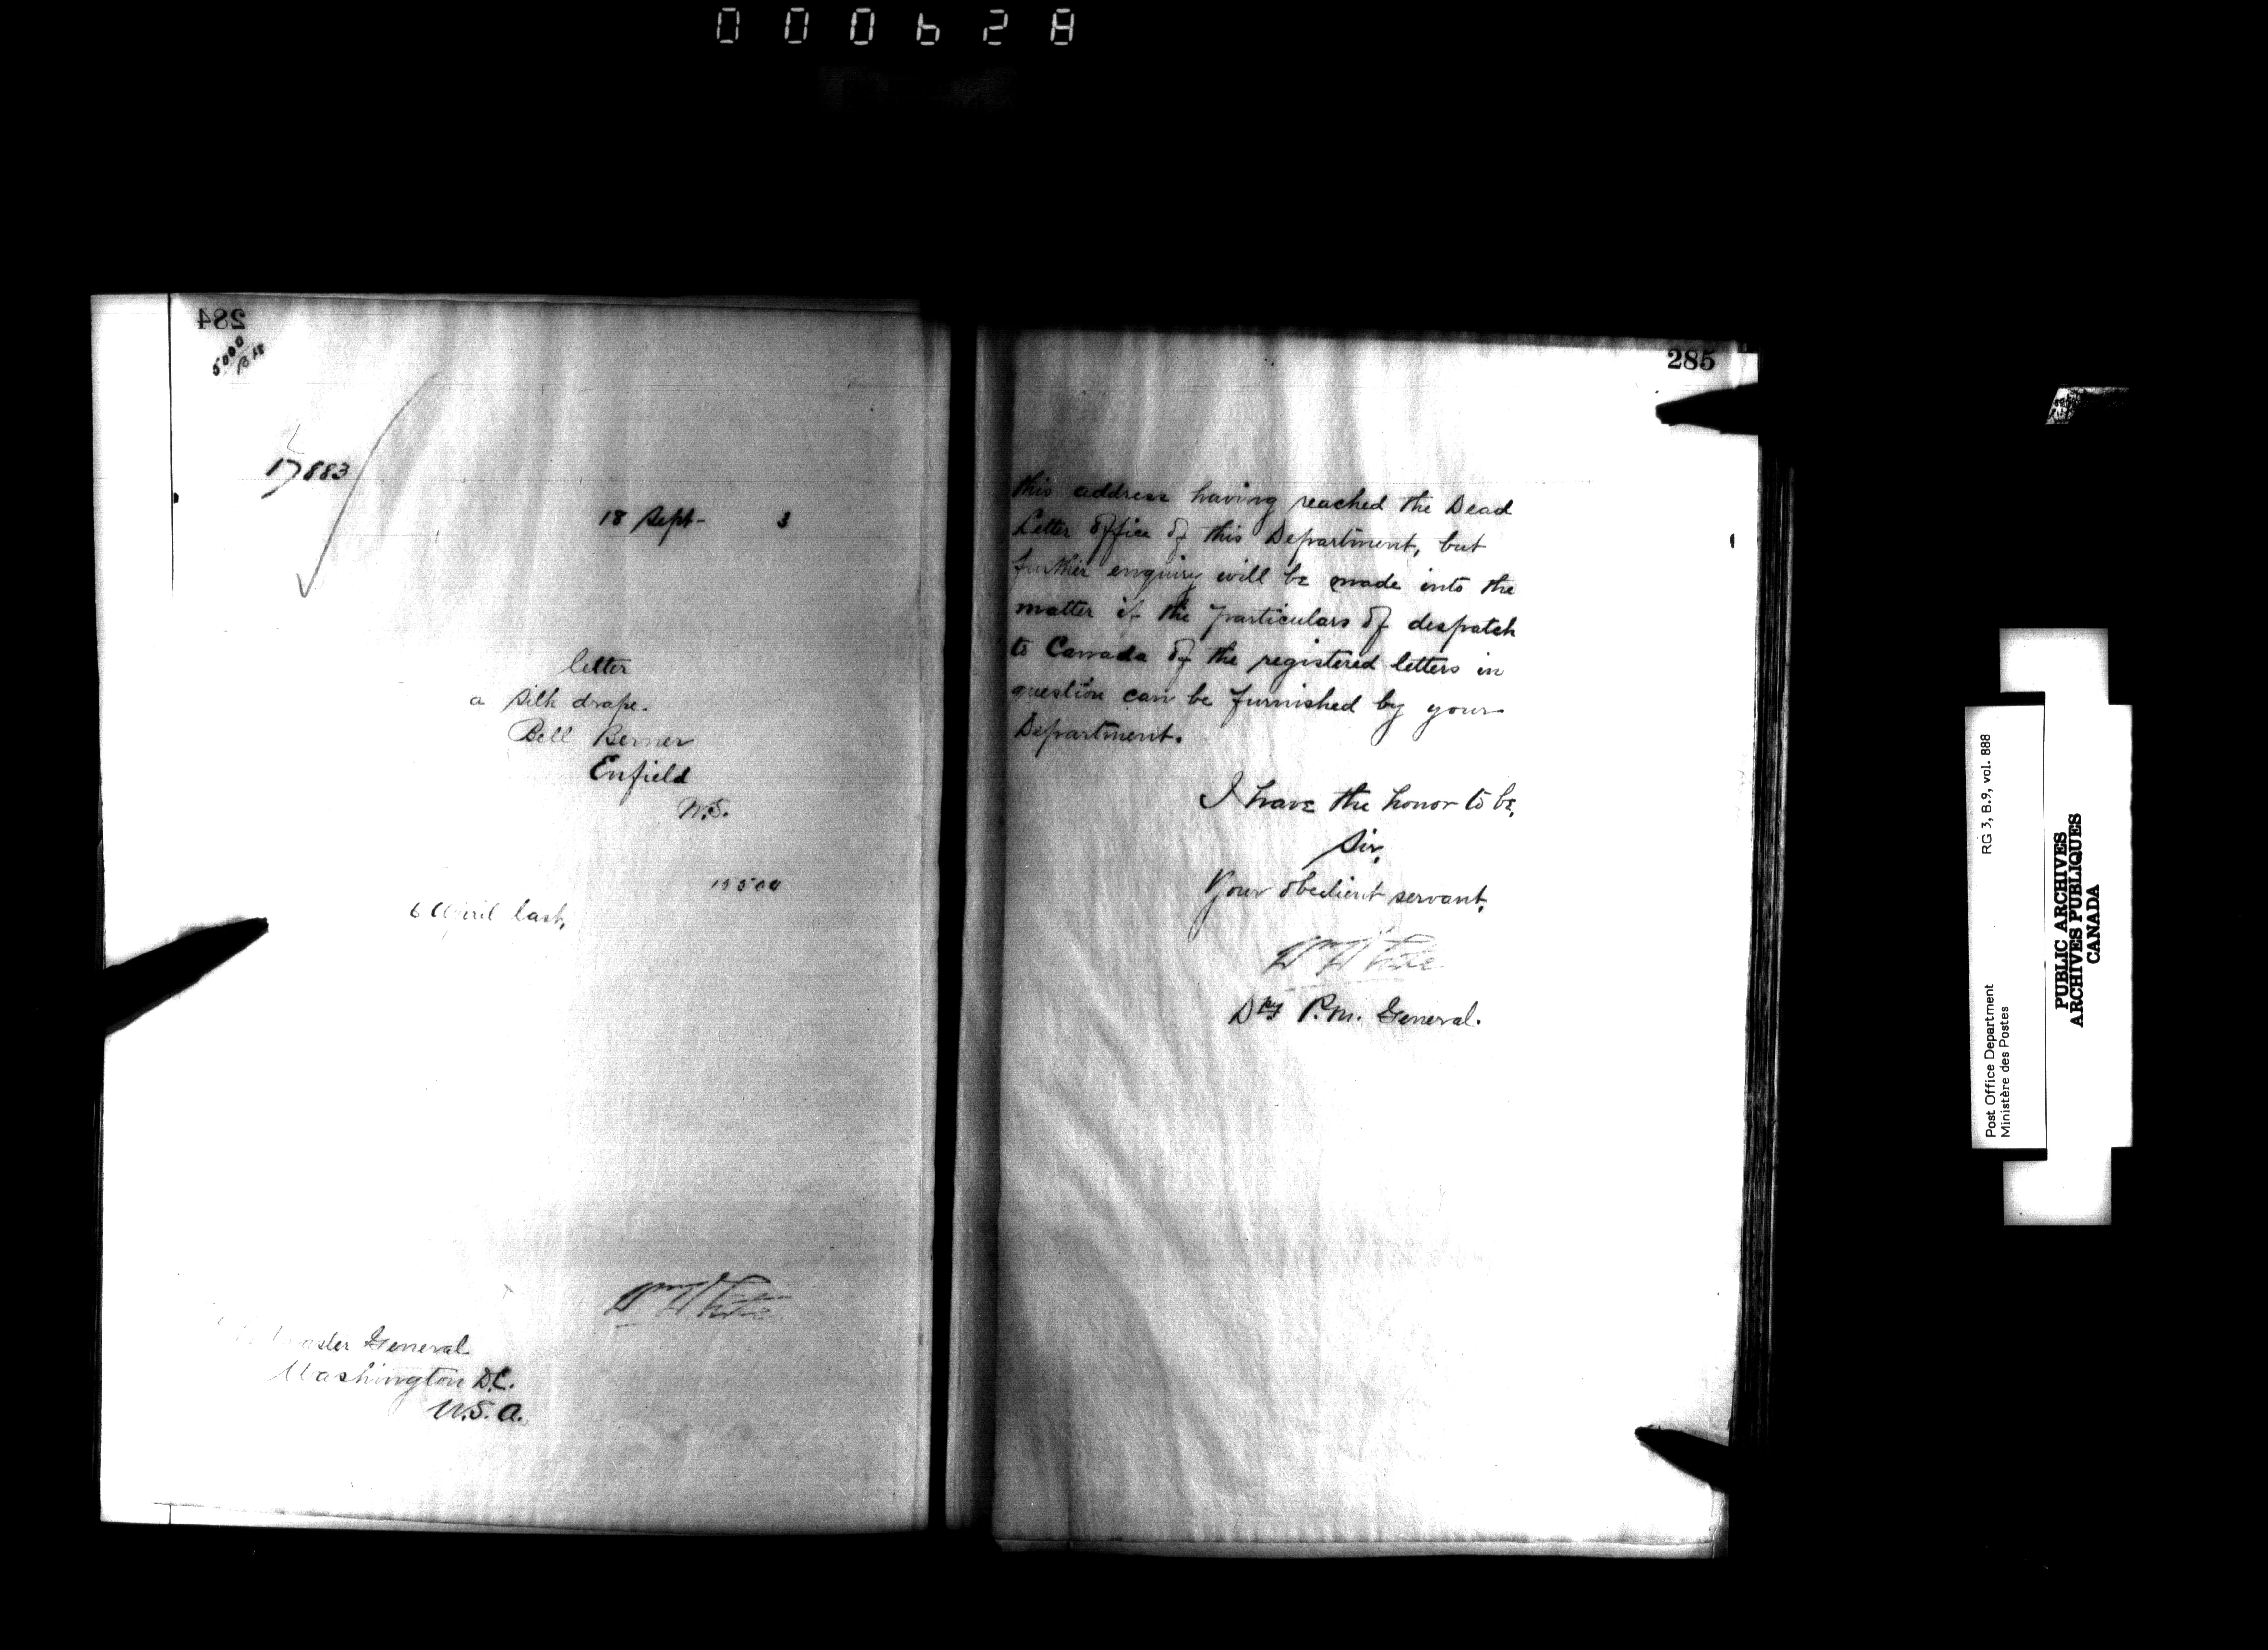 000628
284
5000
B 18
17883
18 Sept- 3
letter
a silk drape.
Bell Berner
Enfield
N.S.
15500
6 April last,
Wm White
master General
Washington D.C.
U.S.A.
285
this address having reached the Dead
Letter office of this Department, but
further enquiry will be made into the
matter if the particulars of despatch
to Canada of the registered letters in
question can be furnished by your
Department.
I have the honor to be,
Sir,
Your obedient servant,
Wm White
Dpy P.M. General.
Post Office Department
Ministère des Postes
RG 3, B.9, vol. 888
PUBLIC ARCHIVES
ARCHIVES PUBLIQUES
CANADA